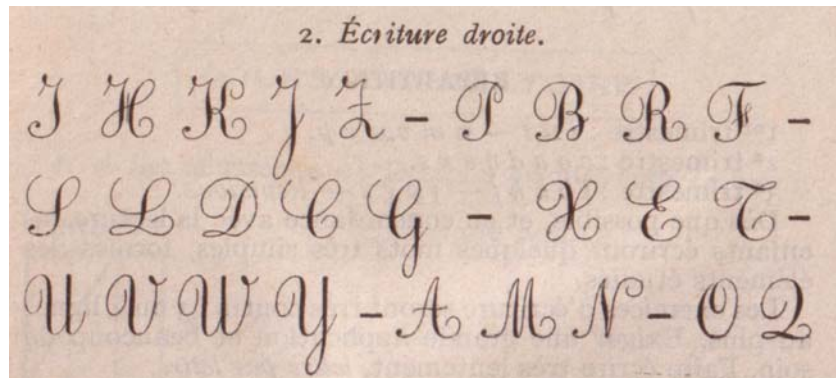 2. Écriture droite.
I H K J Z – P B R F –
S L D C G – X E T –
U V W Y – A M N – O Q